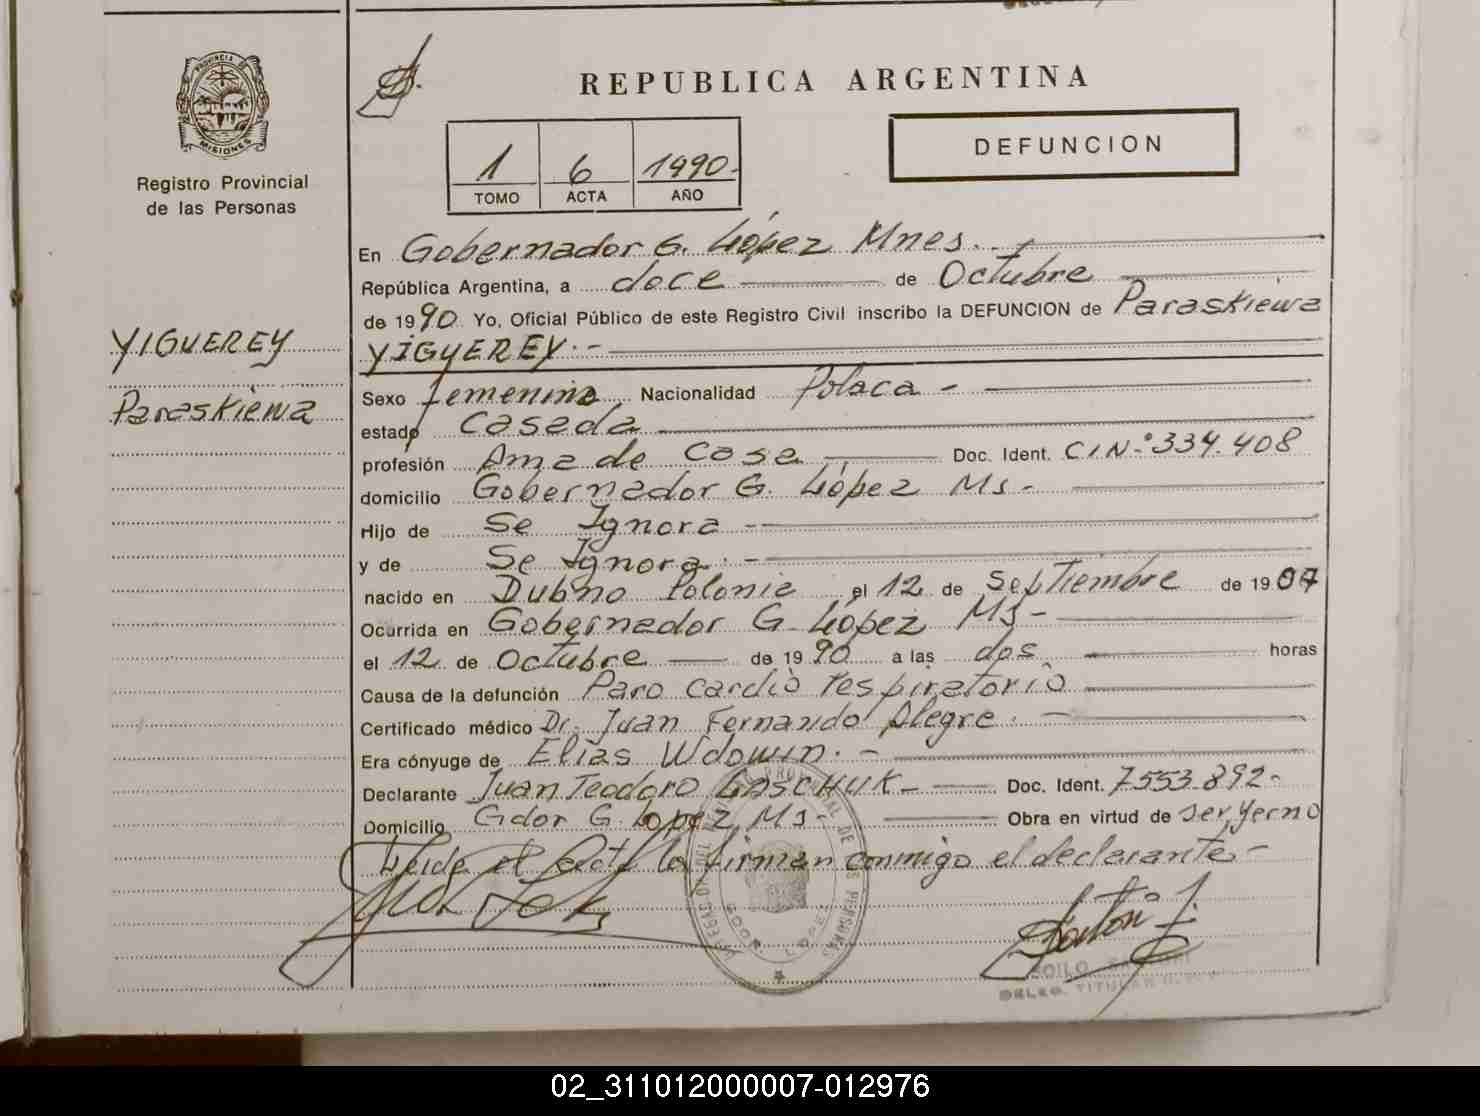 PROVINCIA DE
MISIONES
Registro Provincial
de las Personas
YIGUEREY
Paraskiewa
REPUBLICA ARGENTINA
1 6 1990-
TOMO ACTA AÑO
DEFUNCION
En Gobernador G. López Mnes.
República Argentina, a doce de Octubre
de 1990 Yo, Oficial Público de este Registro Civil inscribo la DEFUNCION de Paraskiewa
YIGUEREY.-
Sexo femenino Nacionalidad Polaca -
estado casada
profesión Ama de Casa Doc. Ident. CIN.° 334.408
domicilio Gobernador G. López Ms-
Hijo de Se Ignora -
y de Se Ignora. -
nacido en Dubno Polonia el 12 de Septiembre de 1907
Ocurrida en Gobernador G López Ms-
el 12 de Octubre de 1990 a las dos horas
Causa de la defunción Paro cardio respiratorio
Certificado médico Dr. Juan Fernando Alegre. -
Era cónyuge de Elias Wdowin. -
Declarante Juan Teodoro Doc. Ident. 7553.892-
Domicilio Gdor G. Lopez Ms- Obra en virtud de ser yerno
Leida el acta la firman conmigo el declarante-
DELEG. TITULAR
02_311012000007-012976